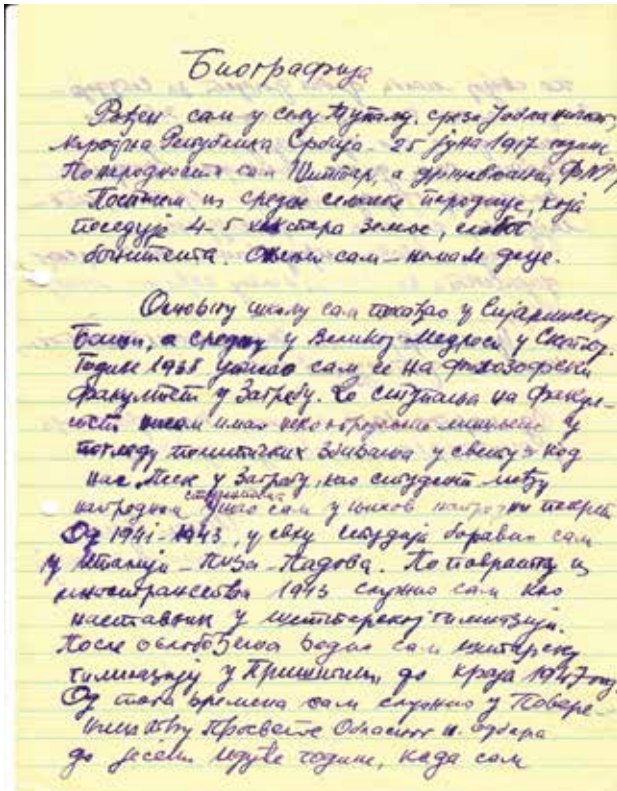 Биографија
Рођен сам у селу Тупалу, среза Јабланичког,
Народна Република Србија 25 јуна 1917 године
По народности сам Шиптар, а држављанин ФНРЈ
Потичем из средње сељачке породице, која
поседује 4-5 хектара земље, слабог
бонитета. Ожењен сам – немам деце.
Основну школу сам похађао у Сијаринској
Бањи, а средњу у Великој Медреси у Скопљу.
Године 1938 уписао сам се на Филозофски
факултет у Загребу. До ступања на факул-
тет нисам имао неко одређено мишљење у
погледу политичких збивања у свету и код
нас. Тек у Загребу, као студент међу
напредним студентима ушао сам у њихов напредни покрет
Од 1941-1943, у сврху студија боравио сам
у Италији – Пиза – Падова. По повратку из
иностранства 1943 служио сам као
наставник у шиптарској гимназији.
После ослобођења водио сам шиптарску
гимназију у Приштини до краја 1947 год.
Од тога времена сам служио у Повере-
ништву Просвете Обласног н. одбора
до јесени идуће године, када сам